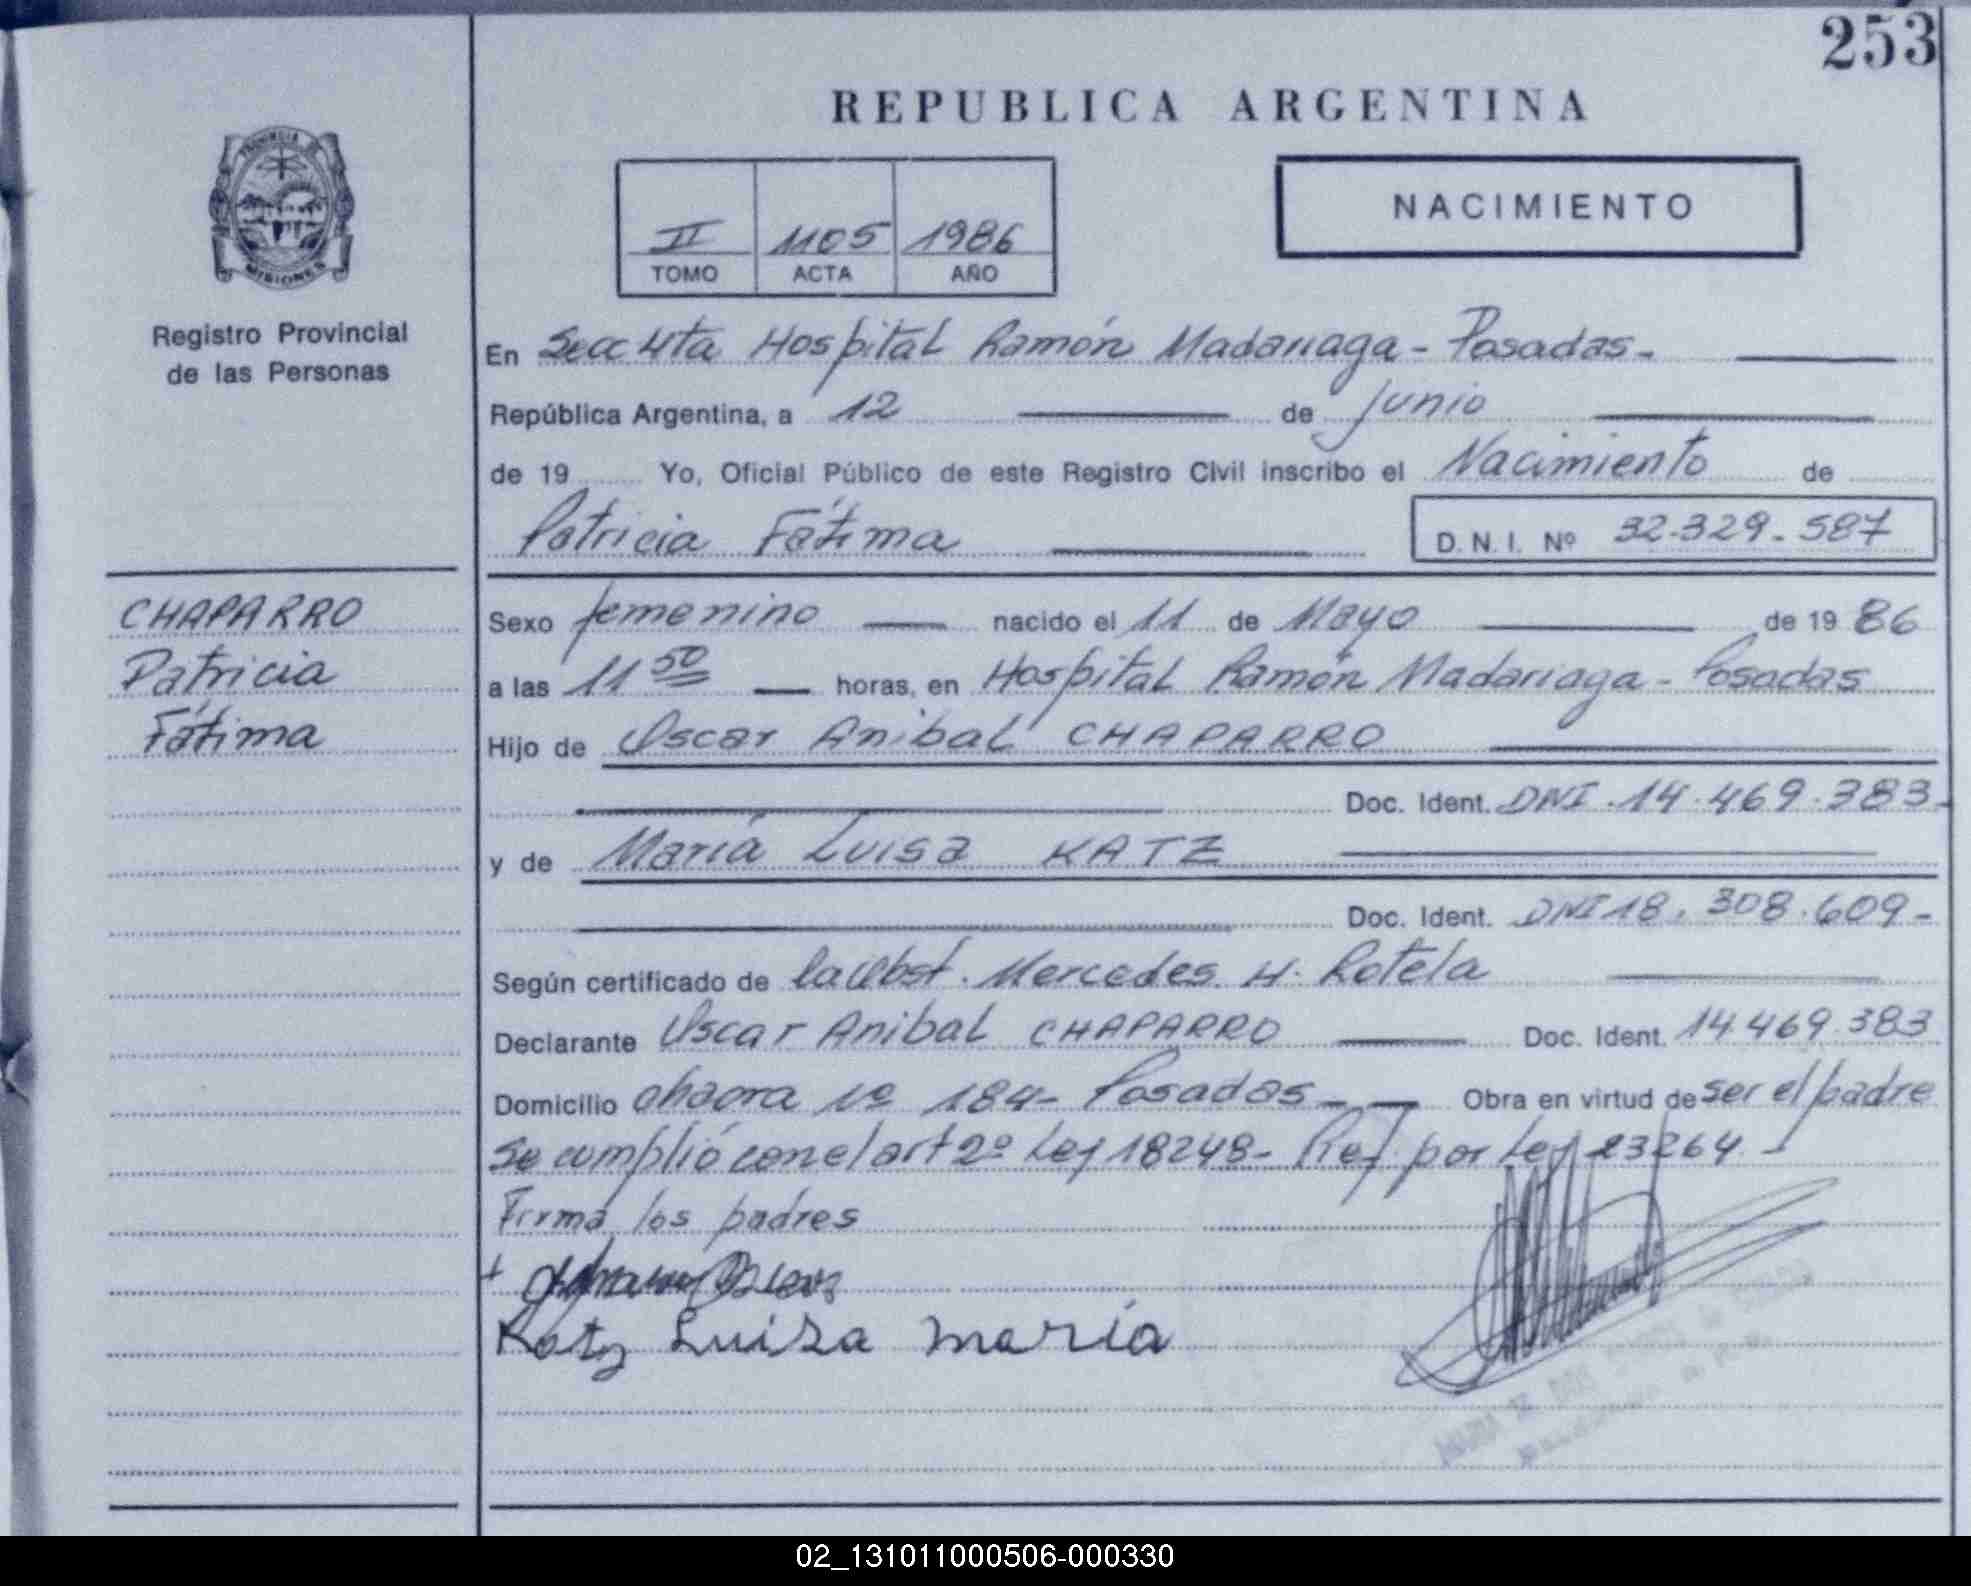 253
REPUBLICA ARGENTINA
PROVINCIA DE
MISIONES
Registro Provincial
de las Personas
II 1105 1986
TOMO ACTA AÑO
NACIMIENTO
En Secc 4ta Hospital Ramón Madariaga - Posadas -
República Argentina, a 12 de junio
de 19 Yo, Oficial Público de este Registro Civil inscribo el Nacimiento de
Patricia Fátima D.N.I. Nº 32.329.587
CHAPARRO
Patricia
Fátima
Sexo femenino nacido el 11 de Mayo de 19 86
a las 11 50 horas, en Hospital Ramón Madariaga - Posadas
Hijo de Oscar Anibal CHAPARRO
Doc. Ident. DNI. 14.469.383-
y de María Luisa KATZ
Doc. Ident. DNI 18.308.609-
Según certificado de la Obst. Mercedes H. Rotela
Declarante Oscar Anibal CHAPARRO Doc. Ident. 14.469.383
Domicilio chacra Nº 184- Posadas - Obra en virtud de ser el padre
Se cumplió con el art 2º Ley 18248- Ref. por Ley 23264
Firma los padres
Katz Luisa María
02_131011000506-000330